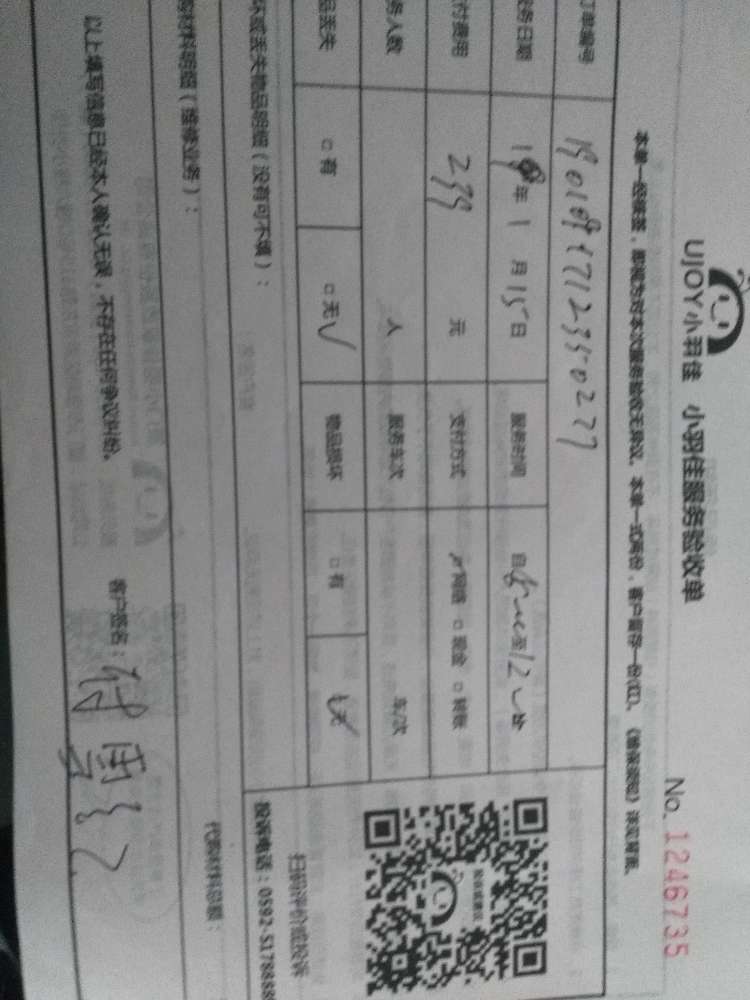 UJOY小羽佳 小羽佳服务验收单
No. 1246735
本单一经签签，即视为对本次服务验收无异议。本单一式两份，客户留存一份(红)。《维保须知》详见背面。
订单编号
服务日期 19年1月15日 服务时间 自 至12 时
付费用 299 元 支付方式 网络 □ 现金 □ 转账
务人数 人 服务车次 车/次
品丢失 □ 有 □ 无√ 物品损坏 □ 有 无
坏或丢失物品明细（没有可不填）：
扫码评价或投诉
投诉电话：0592-5178888
购材料明细（维修业务）：
代购材料总额：
以上填写信息已经本人确认无误，不存在任何争议纠纷。
客户签名：